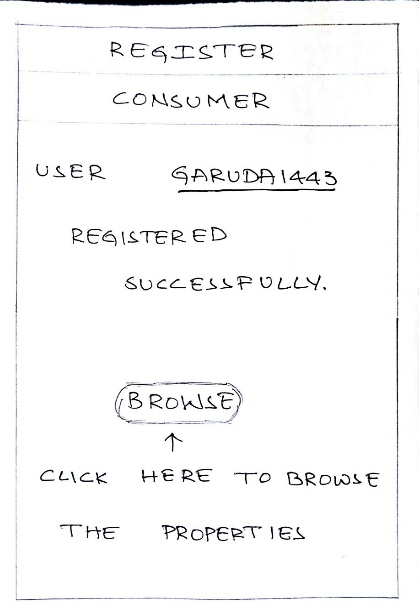 REGISTER
CONSUMER
USER GARUDA1443
REGISTERED
SUCCESSFULLY.
BROWSE
↑
CLICK HERE TO BROWSE
THE PROPERTIES